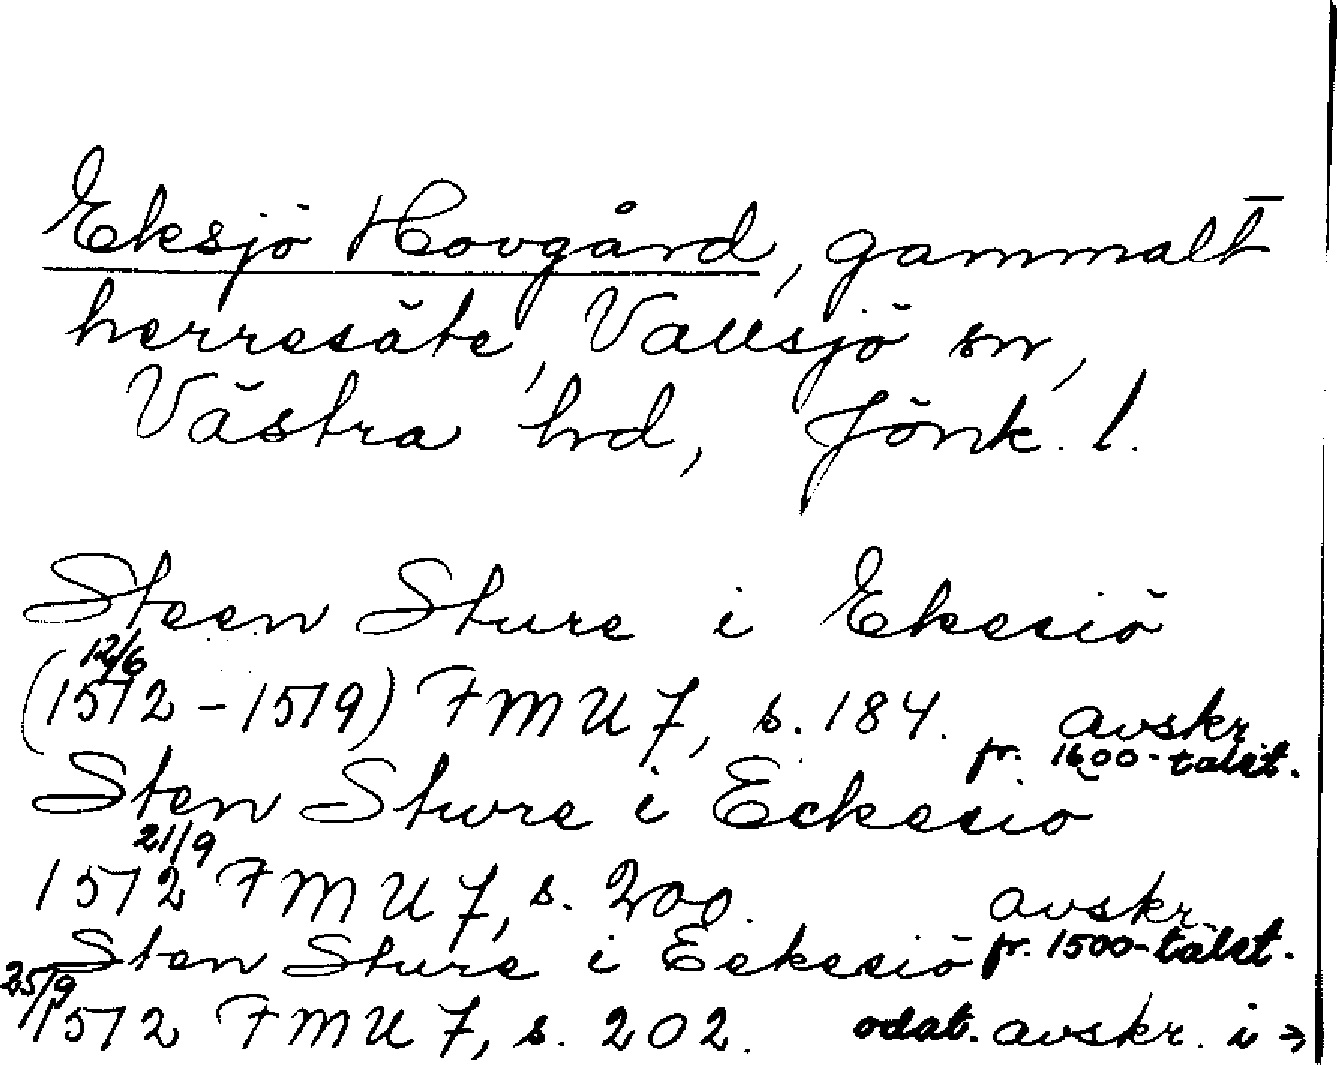 Eksjö Hovgård, gammalt
herresäte, Vallsjö sn,
Västra hd, Jönk. l.
Steen Sture i Ekesiö
12/6
(1512-1519) FMU 7, s. 184. avskr.
fr. 1600-talet.
Sten Sture i Eckesio
21/9
1512 FMU 7, s. 200. avskr.
Sten Sture i Eekesiö fr. 1500-talet.
25/9
1512 FMU 7, s. 202. odat. avskr. i →